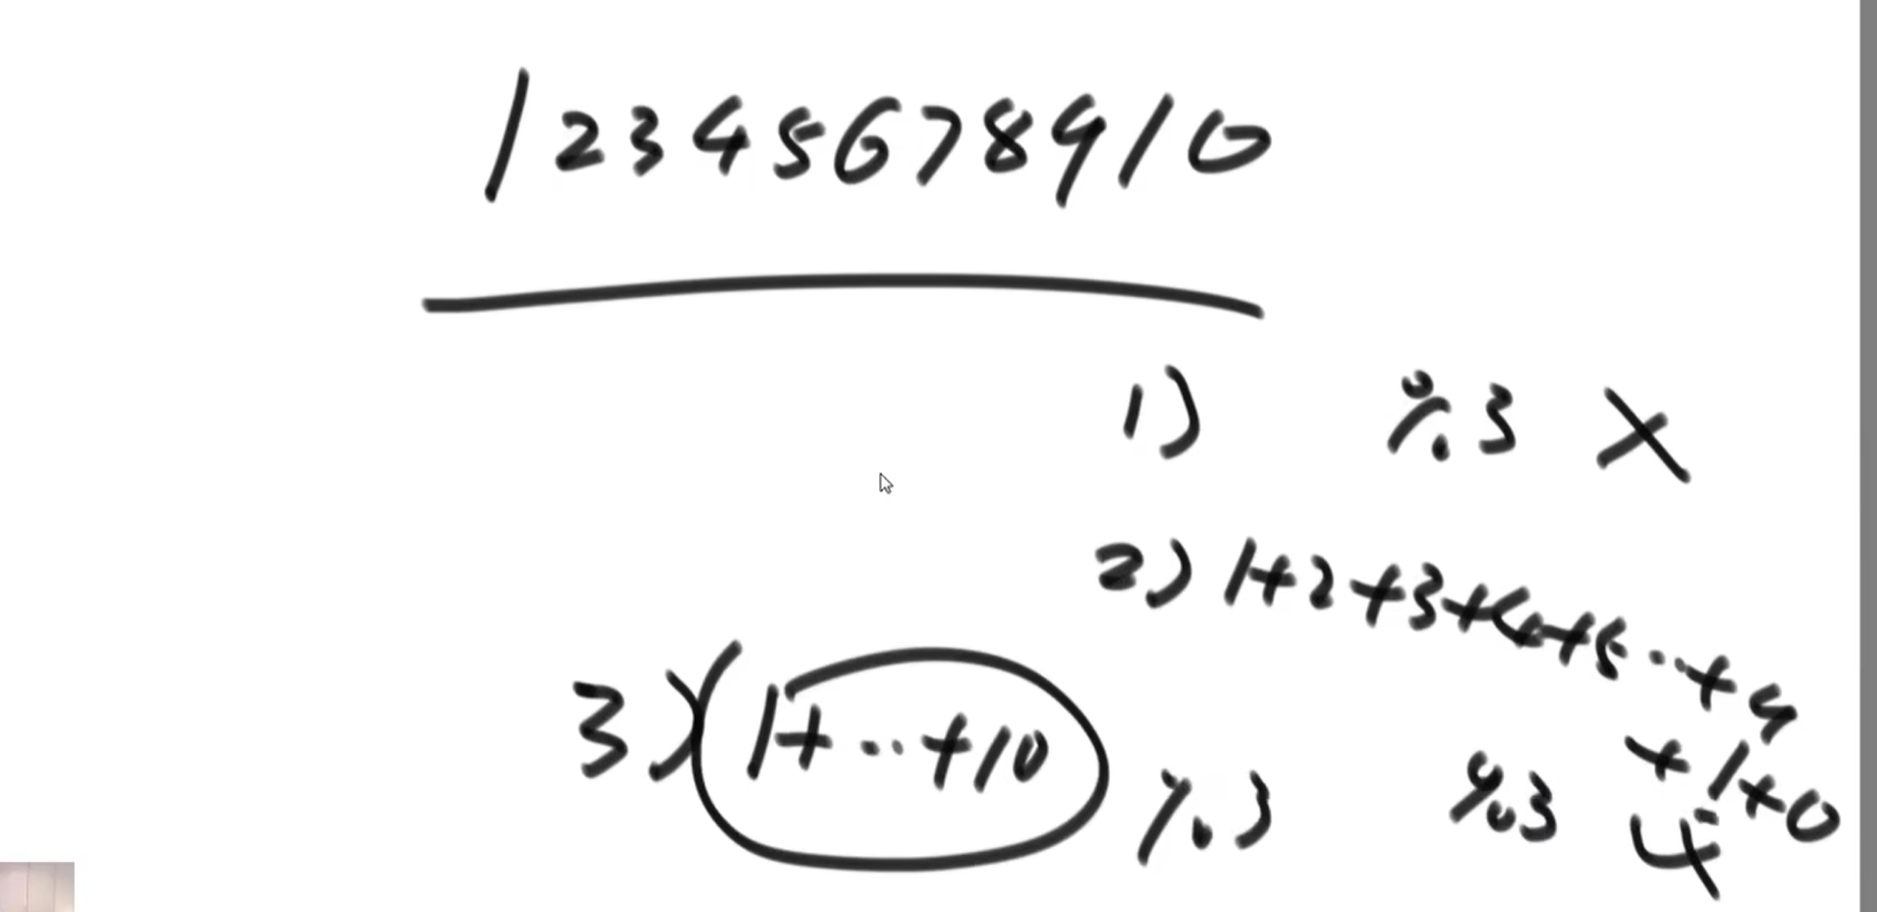 12345678910
1) %3 X
2) 1+2+3+4+5..+9
+1+0
%3
3) (1+..+10) %3